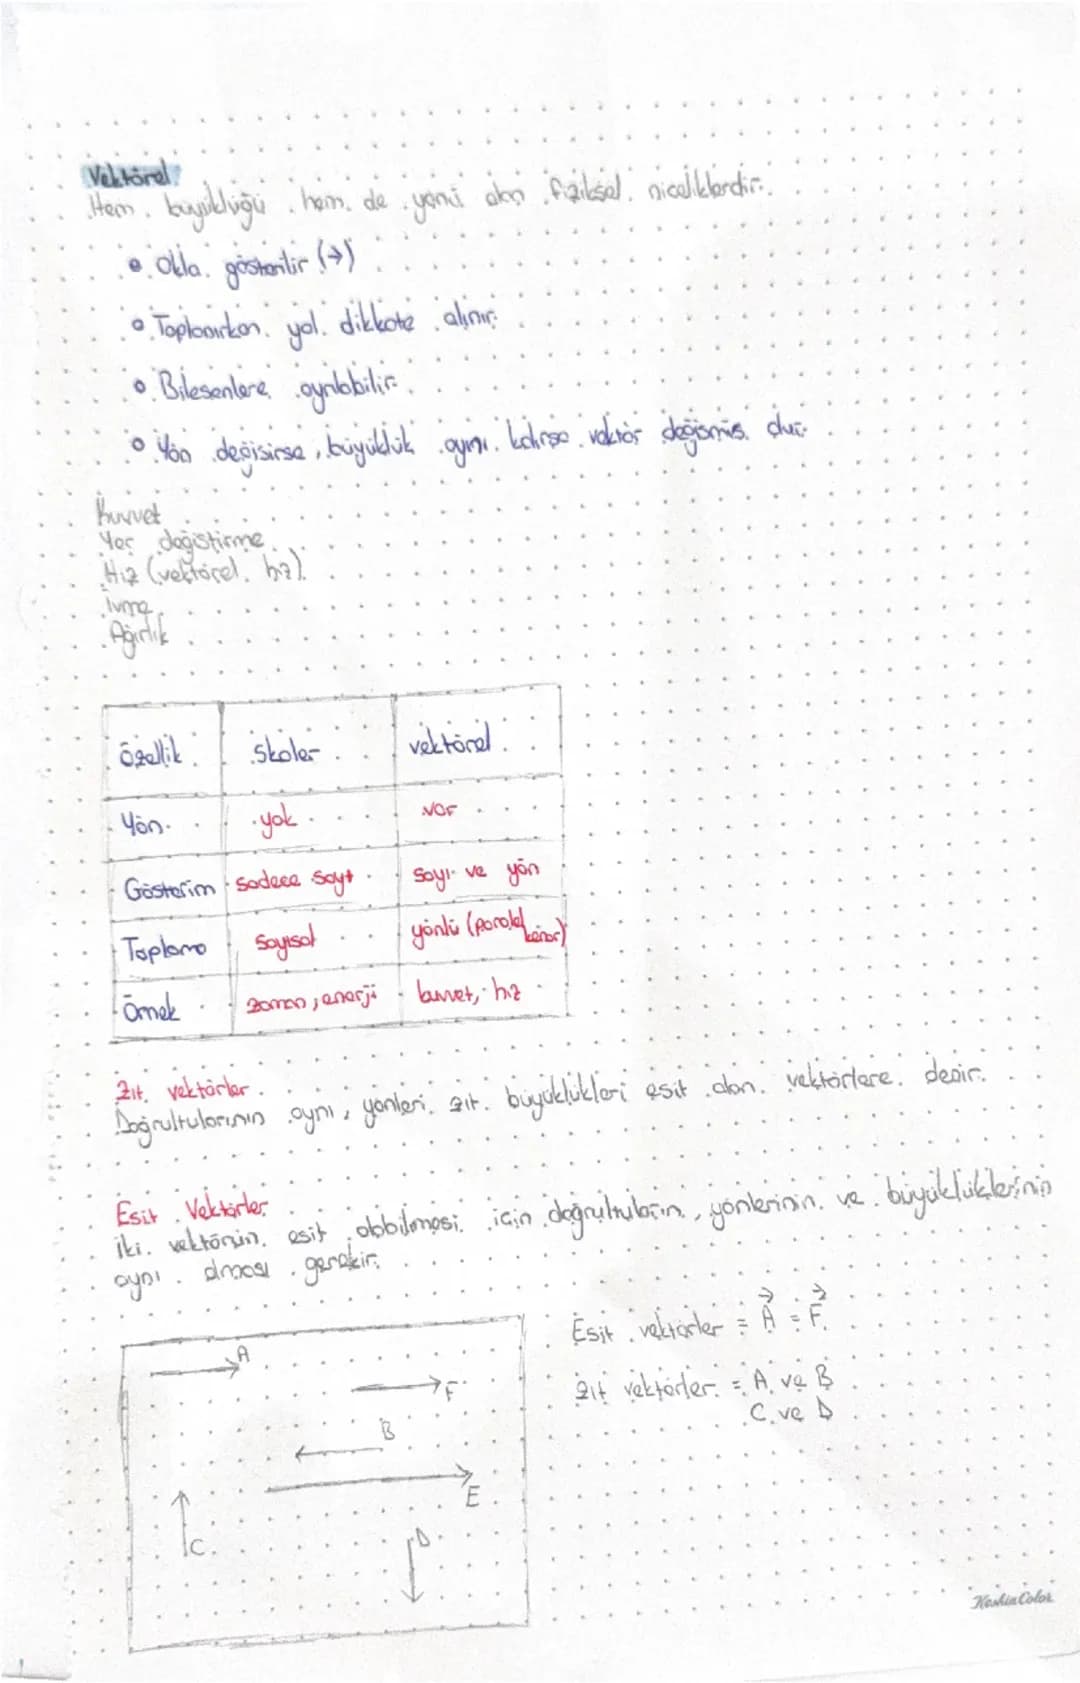 Vektörel:
Hem büyüklüğü hem de yönü olan fiziksel niceliklerdir.
• Okla gösterilir (→)
• Toplanırken yol dikkate alınır.
• Bilesenlere ayrılabilir.
• Yön değisirse, büyüklük aynı kalırsa vektör değismis olur.
Kuvvet
Yer değistirme
Hız (vektörel hız)
İvme
Ağırlık
Özellik skaler vektörel
Yön yok var
Gösterim sadece sayı sayı ve yön
Toplama sayısal yönlü (paralel kenar)
Örnek zaman, enerji kuvvet, hız
Zıt vektörler
Doğrultularının aynı, yönleri zıt büyüklükleri esit olan vektörlere denir.
Esit Vektörler
İki vektörün esit olabilmesi icin doğrultuların, yönlerinin ve büyüklüklerinin
aynı olması gerekir.
Esit vektörler = A = F
zıt vektörler = A ve B
C ve D
A
F
B
E
C
D
KeshinColor